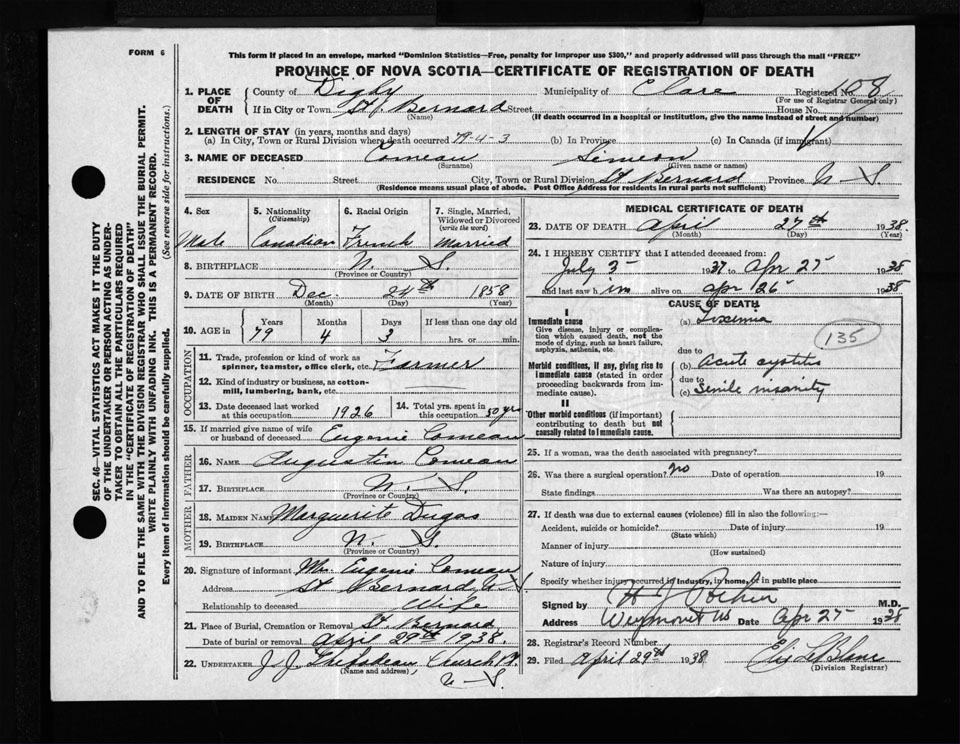 FORM 6
This form if placed in an envelope, marked "Dominion Statistics—Free, penalty for improper use $300," and properly addressed will pass through the mail "FREE"
PROVINCE OF NOVA SCOTIA—CERTIFICATE OF REGISTRATION OF DEATH
1. PLACE OF DEATH
County of Digby Municipality of Clare Registered No. 108
(For use of Registrar General only)
If in City or Town St. Bernard Street House No.
(Name) (If death occurred in a hospital or institution, give the name instead of street and number)
2. LENGTH OF STAY (in years, months and days)
(a) In City, Town or Rural Division where death occurred 79-4-3 (b) In Province (c) In Canada (if immigrant)
3. NAME OF DECEASED Comeau Simeon
(Surname) (Given name or names)
RESIDENCE No. Street City, Town or Rural Division St Bernard Province N S
(Residence means usual place of abode. Post Office Address for residents in rural parts not sufficient)
SEC. 46—VITAL STATISTICS ACT MAKES IT THE DUTY
OF THE UNDERTAKER OR PERSON ACTING AS UNDER-
TAKER TO OBTAIN ALL THE PARTICULARS REQUIRED
IN THE "CERTIFICATE OF REGISTRATION OF DEATH"
AND TO FILE THE SAME WITH THE DIVISION REGISTRAR WHO SHALL ISSUE THE BURIAL PERMIT.
WRITE PLAINLY WITH UNFADING INK. THIS IS A PERMANENT RECORD.
Every item of information should be carefully supplied. (See reverse side for instructions.)
4. Sex
Male
5. Nationality
(Citizenship)
Canadian
6. Racial Origin
French
7. Single, Married,
Widowed or Divorced
(write the word)
Married
8. BIRTHPLACE N. S.
(Province or Country)
9. DATE OF BIRTH Dec. 24th 1858
(Month) (Day) (Year)
10. AGE in Years Months Days If less than one day old
79 4 3 hrs. or min.
OCCUPATION
11. Trade, profession or kind of work as
spinner, teamster, office clerk, etc. Farmer
12. Kind of industry or business, as cotton-
mill, lumbering, bank, etc.
13. Date deceased last worked
at this occupation 1926
14. Total yrs. spent in
this occupation 50 yrs
15. If married give name of wife
or husband of deceased Eugenie Comeau
FATHER
16. NAME Augustin Comeau
17. BIRTHPLACE N. S.
(Province or Country)
MOTHER
18. MAIDEN NAME Marguerite Dugas
19. BIRTHPLACE N. S.
(Province or Country)
20. Signature of informant Mrs Eugenie Comeau
Address St Bernard N S
Relationship to deceased Wife
21. Place of Burial, Cremation or Removal St. Bernard
Date of burial or removal April 29th 1938.
22. UNDERTAKER J. J. Thibodeau Church Pt.
(Name and address)
N-S
MEDICAL CERTIFICATE OF DEATH
23. DATE OF DEATH April 27th 1938.
(Month) (Day) (Year)
24. I HEREBY CERTIFY that I attended deceased from:
July 3 1937 to Apr 25 1938
and last saw him alive on Apr 26 1938
CAUSE OF DEATH
I
Immediate cause
Give disease, injury or complica-
tion which caused death, not the
mode of dying, such as heart failure,
asphyxia, asthenia, etc.
(a) Toxemia
135
due to
Morbid conditions, if any, giving rise to
immediate cause (stated in order
proceeding backwards from im-
mediate cause).
(b) Acute cystitis
due to
(c) Senile insanity
II
Other morbid conditions (if important)
contributing to death but not
causally related to immediate cause.
25. If a woman, was the death associated with pregnancy?
26. Was there a surgical operation? No Date of operation 19
State findings Was there an autopsy?
27. If death was due to external causes (violence) fill in also the following:—
Accident, suicide or homicide? Date of injury 19
(State which)
Manner of injury
(How sustained)
Nature of injury
Specify whether injury occurred in industry, in home, or in public place
Signed by M.D.
Address Weymouth NS Date Apr 25 1938
28. Registrar's Record Number
29. Filed April 29th 1938 LeBlanc
(Division Registrar)